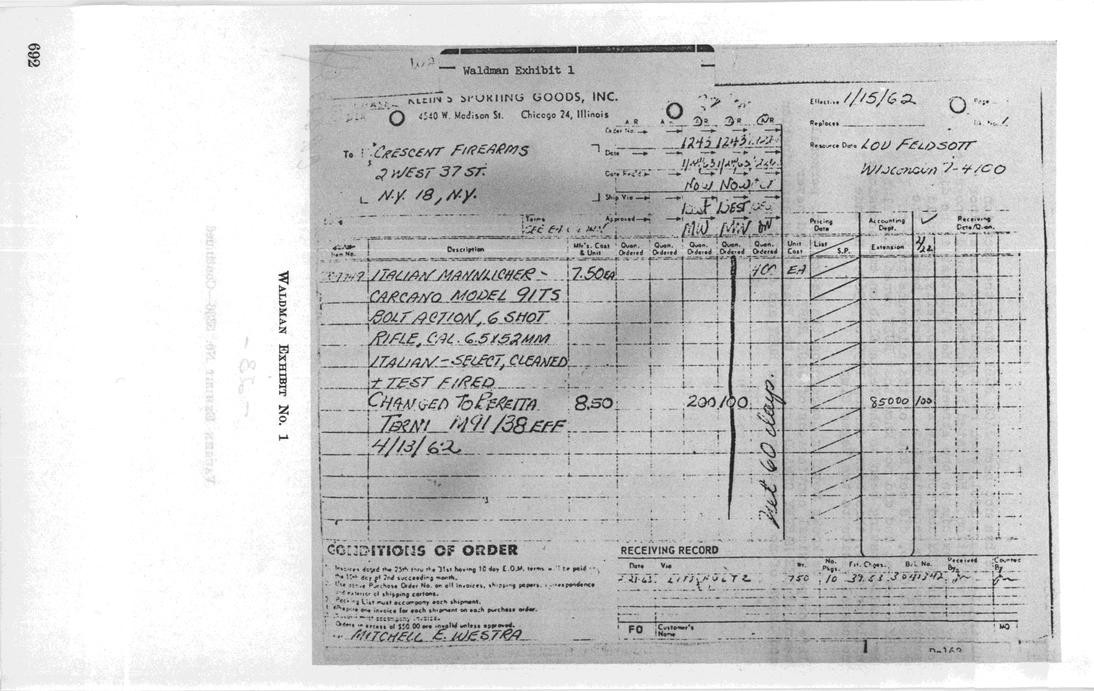 692
WALDMAN EXHIBIT No. 1
Waldman Exhibit 1
KLEIN'S SPORTING GOODS, INC.
4540 W. Madison St. Chicago 24, Illinois
Effective 1/15/62
Replaces
Resource Data LOU FELDSOTT
WISCONSIN 7-4100
To CRESCENT FIREARMS
2 WEST 37 ST.
N.Y. 18, N.Y.
Order No.
1243 1243
Date
NOW NOW
Ship Via
BEST BEST
Terms
Approved
MW MW
Item No.
Description
Mfr's. Cost & Unit
Quan. Ordered
Quan. Ordered
Quan. Ordered
Quan. Ordered
Quan. Ordered
Unit Cost
Pricing Data
List S.P.
Accounting Dept.
Extension
Receiving Date/Quan.
ITALIAN MANNLICHER - 7.50 EA 400 EA
CARCANO MODEL 91TS
BOLT ACTION, 6 SHOT
RIFLE, CAL. 6.5X52MM
ITALIAN - SELECT, CLEANED
+ TEST FIRED
CHANGED TO BERETTA 8.50 200 100 85000/00
TERNI M91/38 EFF
4/13/62
net 60 days.
CONDITIONS OF ORDER
Invoices dated the 25th thru the 31st having 10 day E.O.M. terms will be paid
the 10th day of 2nd succeeding month.
Purchase Order No. on all invoices, shipping papers, correspondence
and exterior of shipping cartons.
Packing List must accompany each shipment.
Prepare one invoice for each shipment on each purchase order.
Orders in excess of $50.00 are invalid unless approved.
MITCHELL E. WESTRA
RECEIVING RECORD
Date Via Wt. No. Pkgs. Frt. Chges. B/L No. Received By Counted By
750 10
FO Customer's Name MO
1